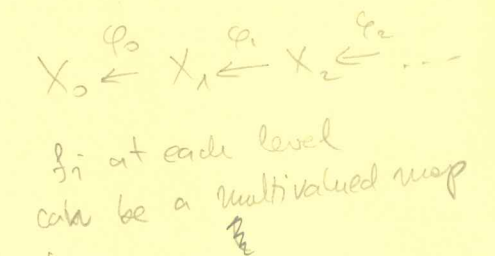 φ₀ φ₁ φ₂
X₀ ← X₁ ← X₂ ← ...
at each level
can be a multivalued map